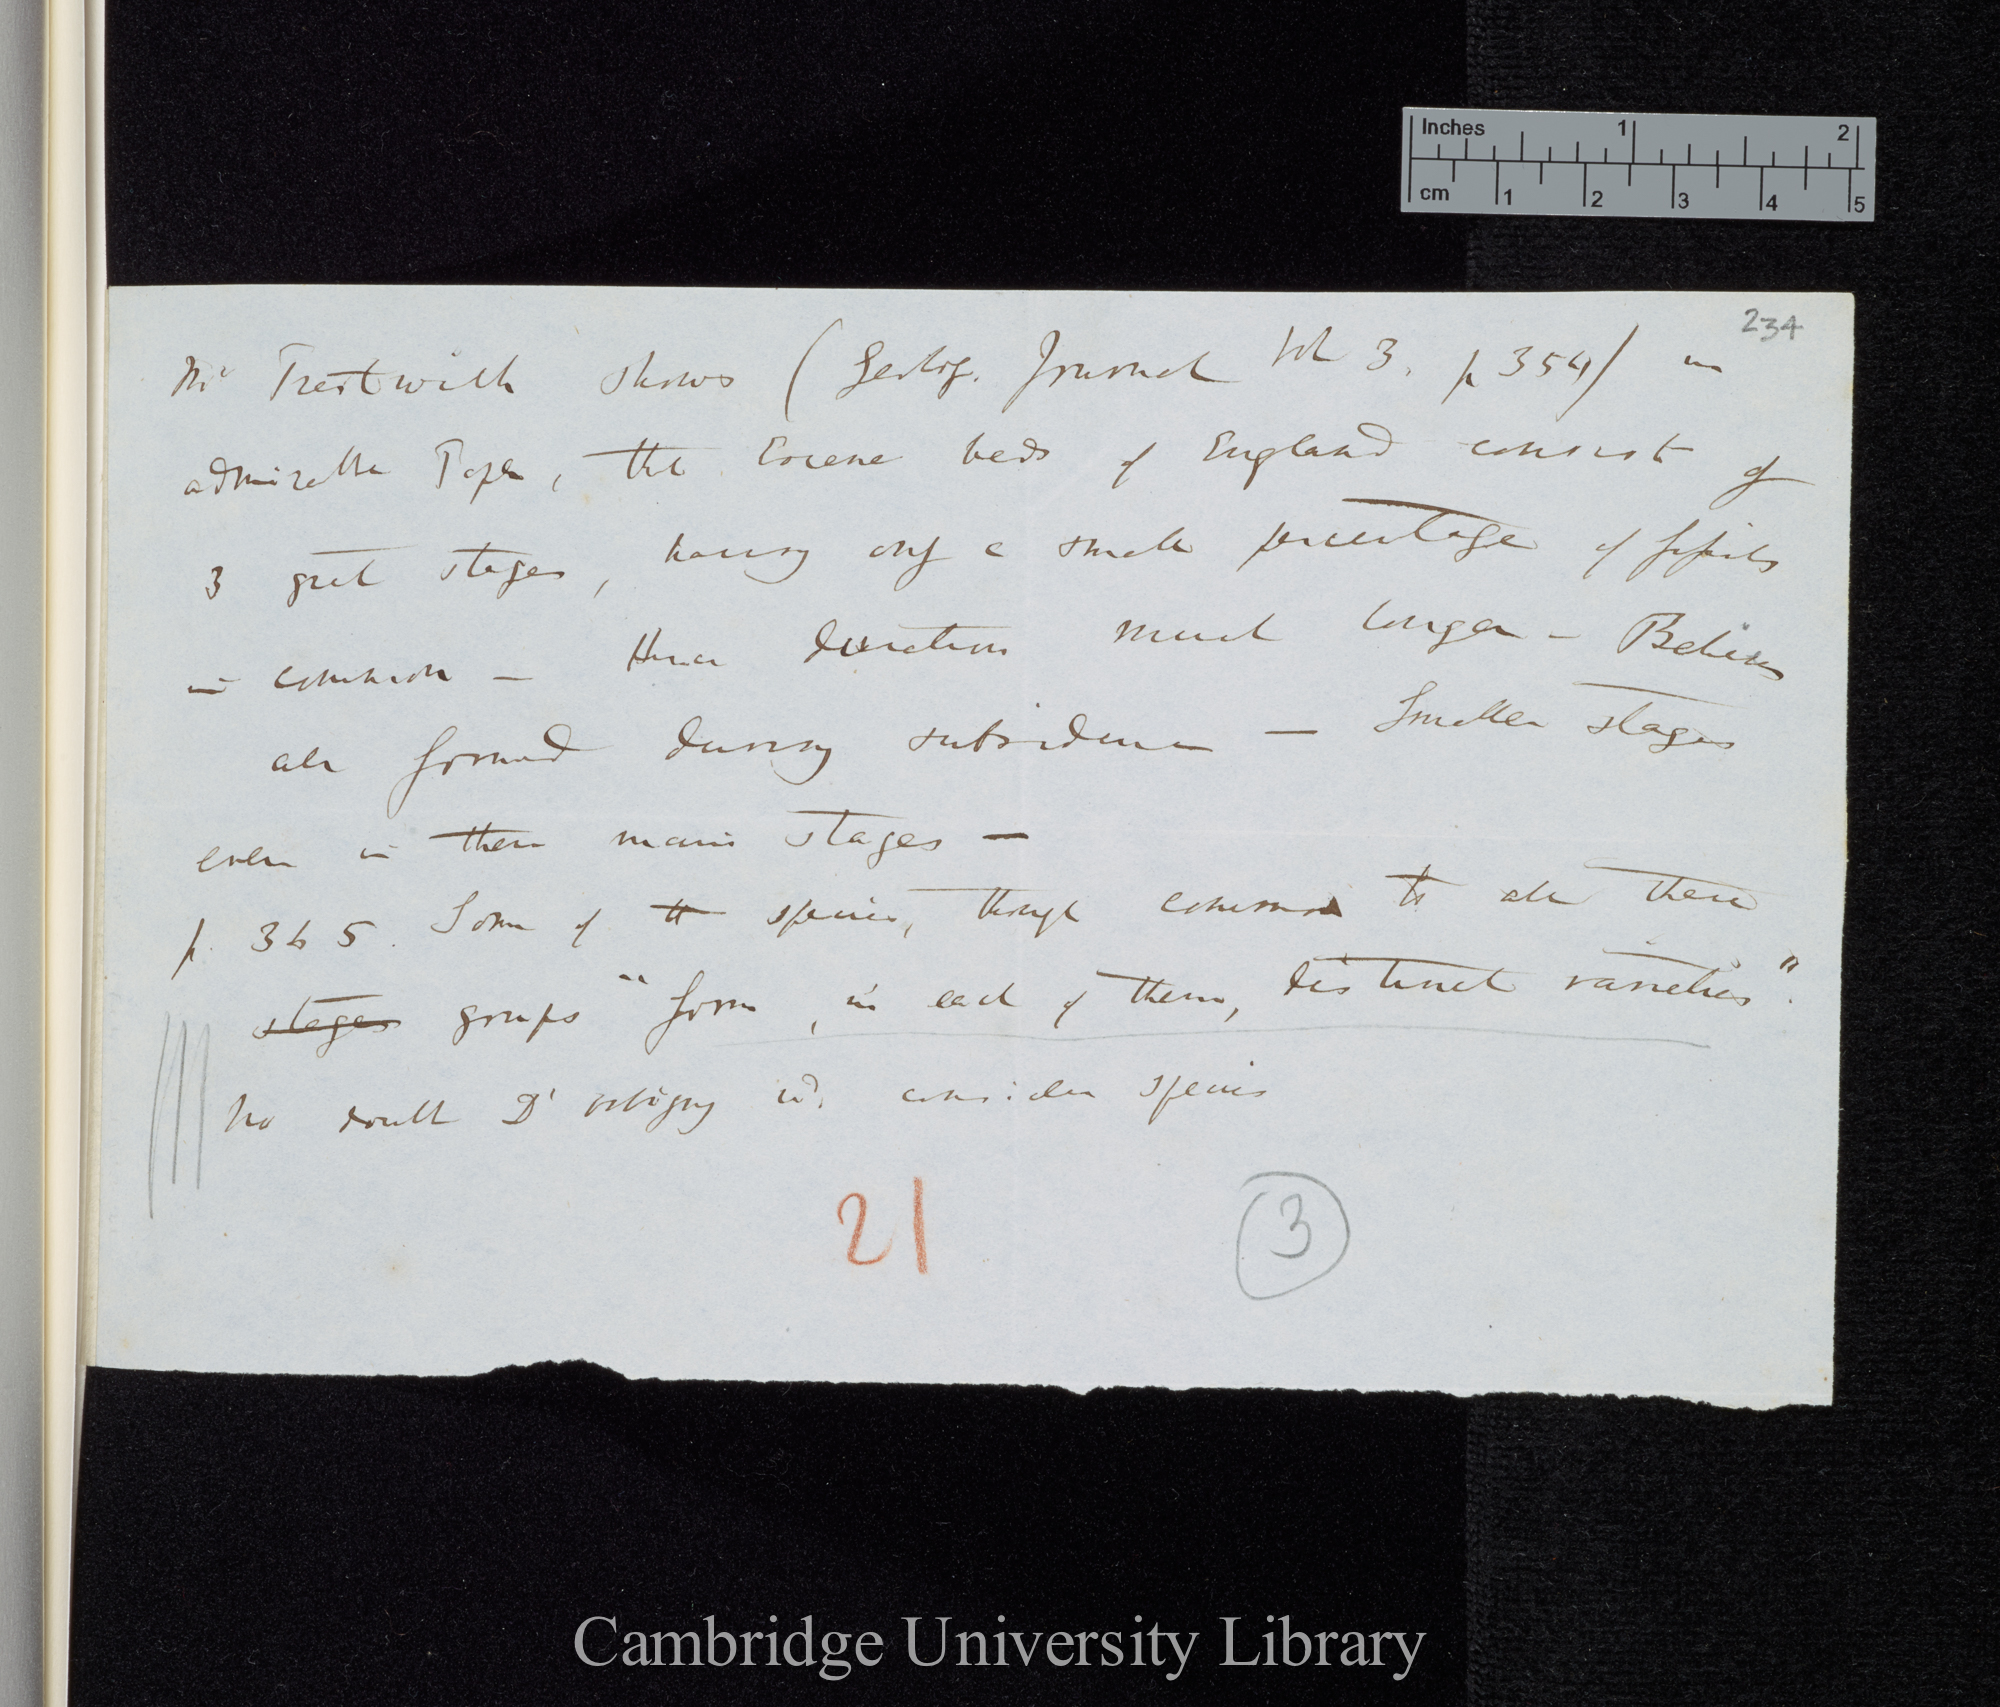 Inches 1 2
cm 1 2 3 4 5
234
Mr Prestwich shows (Geolog. Journal Vol 3. p 354) in
admirable Paper, that Eocene beds of England consist of
3 great stages, having only a small percentage of fossils
in common — Hence duration much longer — Believes
all formed during subsidence — Smaller stages
even in these main stages —
p. 365. Some of the species, though common to all these
stages groups "form, in each of them, distinct varieties".
No doubt D'orbigny wd. consider species
21
3
Cambridge University Library